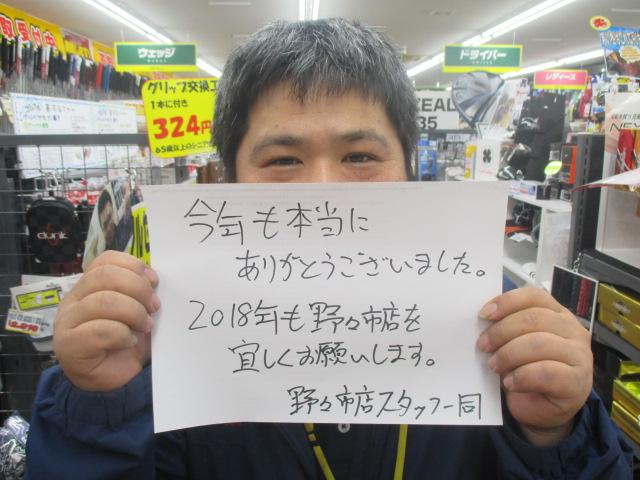 ウェッジ
ドライバー
レディース
グリップ交換工
1本に付き
324円
65歳以上のシニア
今年も本当に
ありがとうございました。
2018年も野々市店を
宜しくお願いします。
野々市店スタッフ一同